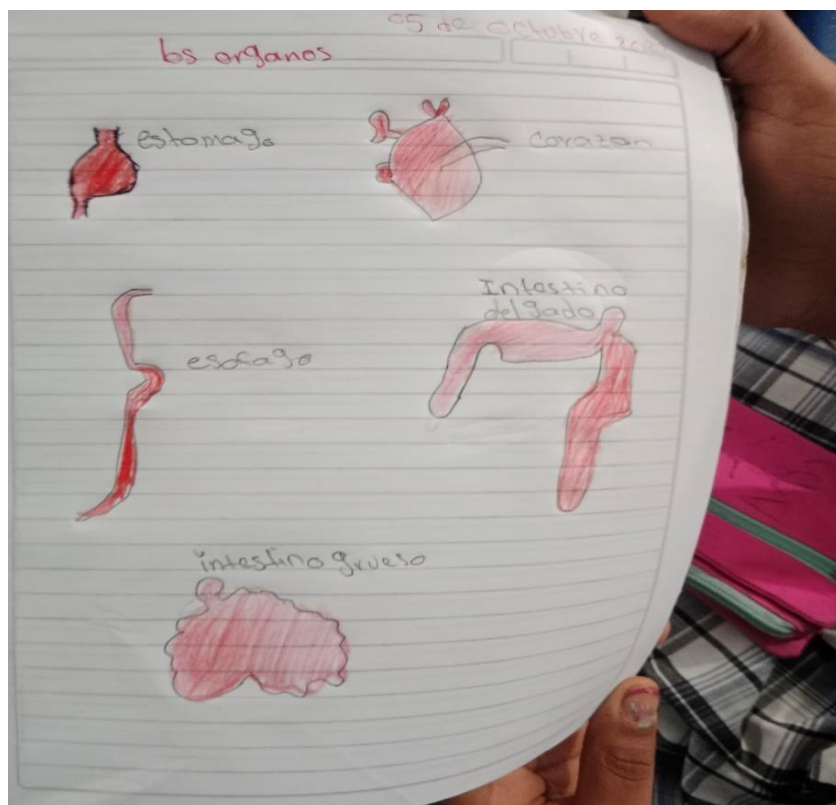 05 de octubre
los organos
estomago
corazon
esofago
Intestino
delgado
intestino grueso